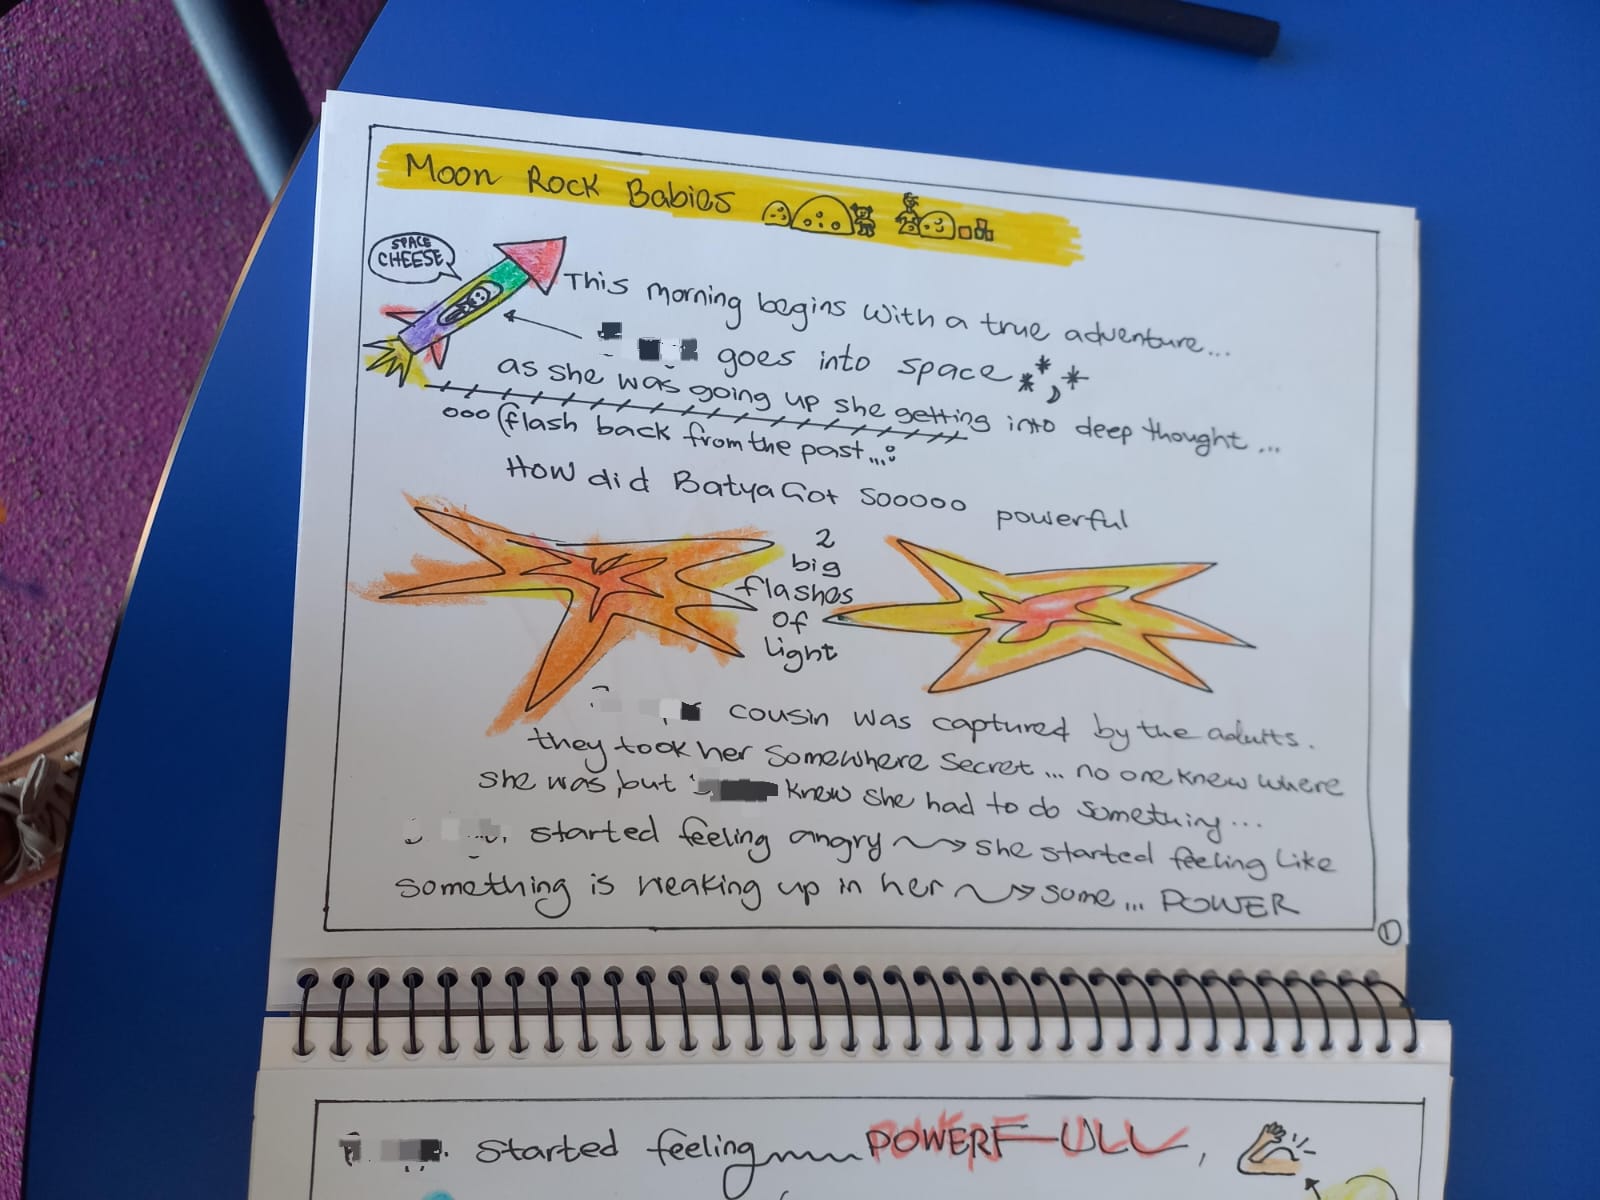 Moon Rock Babies
SPACE
CHEESE
This morning begins with a true adventure...
goes into space
as she was going up she getting into deep thought...
ooo (flash back from the past...:
How did Batya Got sooooo powerful
2
big
flashes
of
light
cousin was captured by the adults.
they took her somewhere secret... no one knew where
she was, but knew she had to do something...
started feeling angry she started feeling like
something is weaking up in her some... POWER
1
started feeling POWERFULL,